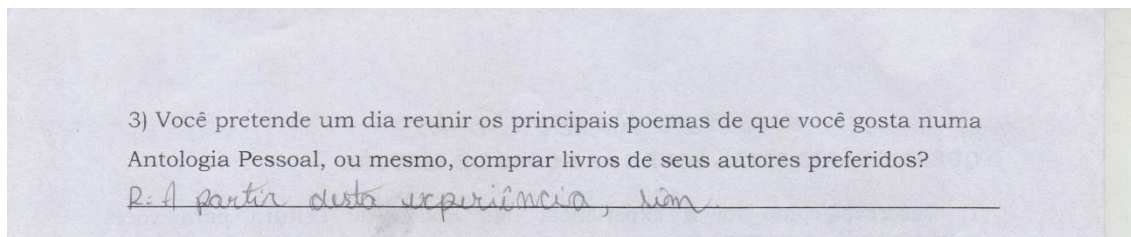 3) Você pretende um dia reunir os principais poemas de que você gosta numa
Antologia Pessoal, ou mesmo, comprar livros de seus autores preferidos?
R: A partir desta experiência, sim.